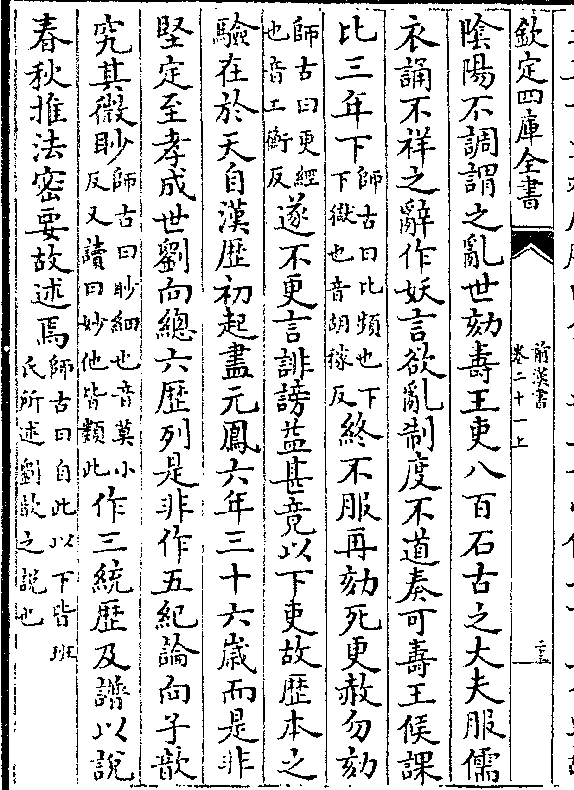 欽定四庫全書
前漢書
卷二十一上
陰陽不調謂之亂世劾壽王吏八百石古之大夫服儒
衣誦不祥之辭作妖言欲亂制度不道奏可壽王候課
比三年下師古曰比頻也下下獄也音胡稼反終不服再劾死更赦勿劾
師古曰更經也音工衡反遂不更言誹謗益甚竟以下吏故歴本之
驗在於天自漢歴初起盡元鳳六年三十六歲而是非
堅定至孝成世劉向總六歴列是非作五紀論向子歆
究其微眇師古曰眇細也音莫小反又讀曰妙他皆類此作三統歴及譜以說
春秋推法密要故述焉師古曰自此以下皆班氏所述劉歆之說也